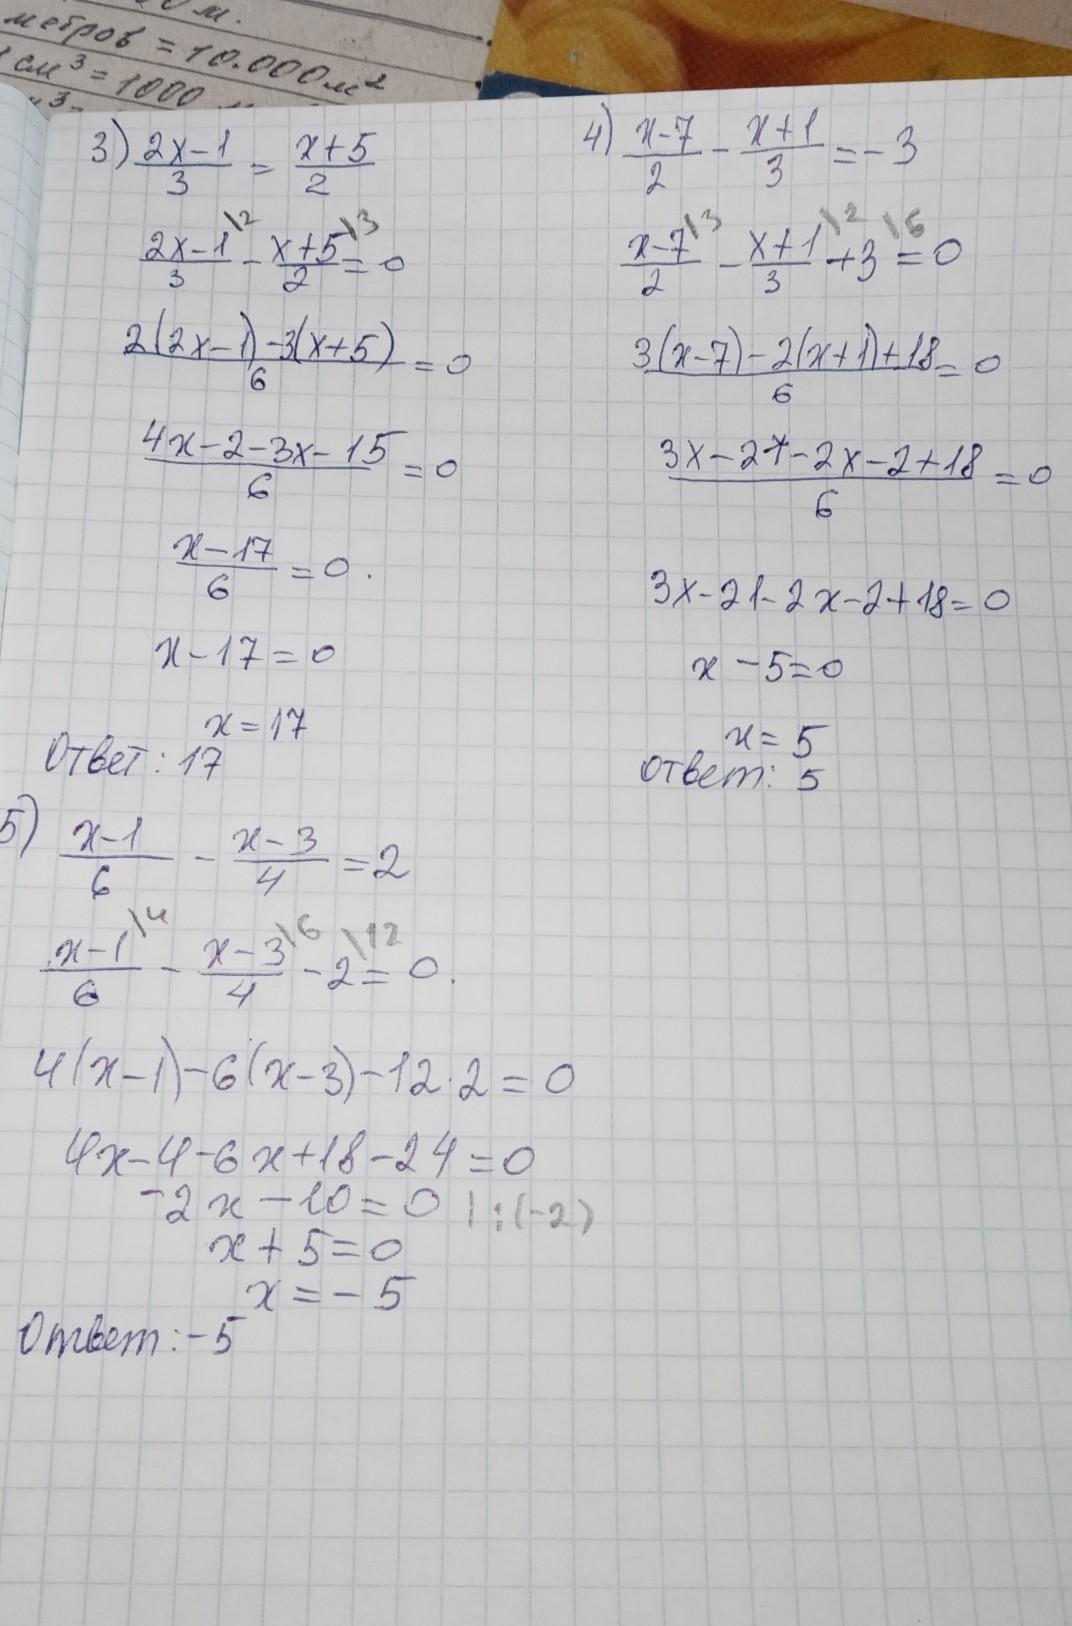 0 м.
метров = 10.000 м²
см³ = 1000
3) (2x-1)/3 = (x+5)/2
(2x-1)/3 \2 - (x+5)/2 \3 = 0
(2(2x-1)-3(x+5))/6 = 0
(4x-2-3x-15)/6 = 0
(x-17)/6 = 0.
x-17=0
x=17
Ответ: 17
4) (x-7)/2 - (x+1)/3 = -3
(x-7)/2 \3 - (x+1)/3 \2 + 3 \6 = 0
(3(x-7)-2(x+1)+18)/6 = 0
(3x-21-2x-2+18)/6 = 0
3x-21-2x-2+18=0
x-5=0
x=5
Ответ: 5
5) (x-1)/6 - (x-3)/4 = 2
(x-1)/6 \4 - (x-3)/4 \6 - 2 \12 = 0.
4(x-1)-6(x-3)-12·2=0
4x-4-6x+18-24=0
-2x-10=0 |:(-2)
x+5=0
x=-5
Ответ: -5